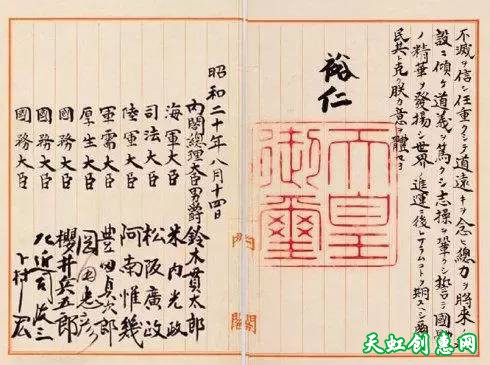 不滅ヲ信シ任重クシテ道遠キヲ念ヒ總力ヲ將來ノ
設ニ傾ケ道義ヲ篤クシ志操ヲ鞏クシ誓テ國體
ノ精華ヲ發揚シ世界ノ進運ニ後レサラムコトヲ期スヘシ爾
民其レ克ク朕カ意ヲ體セヨ
裕仁
天皇御璽
內閣
昭和二十年八月十四日
內閣總理大臣男爵 鈴木貫太郎
海軍大臣 米內光政
司法大臣 松阪廣政
陸軍大臣 阿南惟幾
軍需大臣 豊田貞次郎
厚生大臣 岡田忠彥
國務大臣 櫻井兵五郎
國務大臣 左近司政三
國務大臣 下村宏
天虹创意网